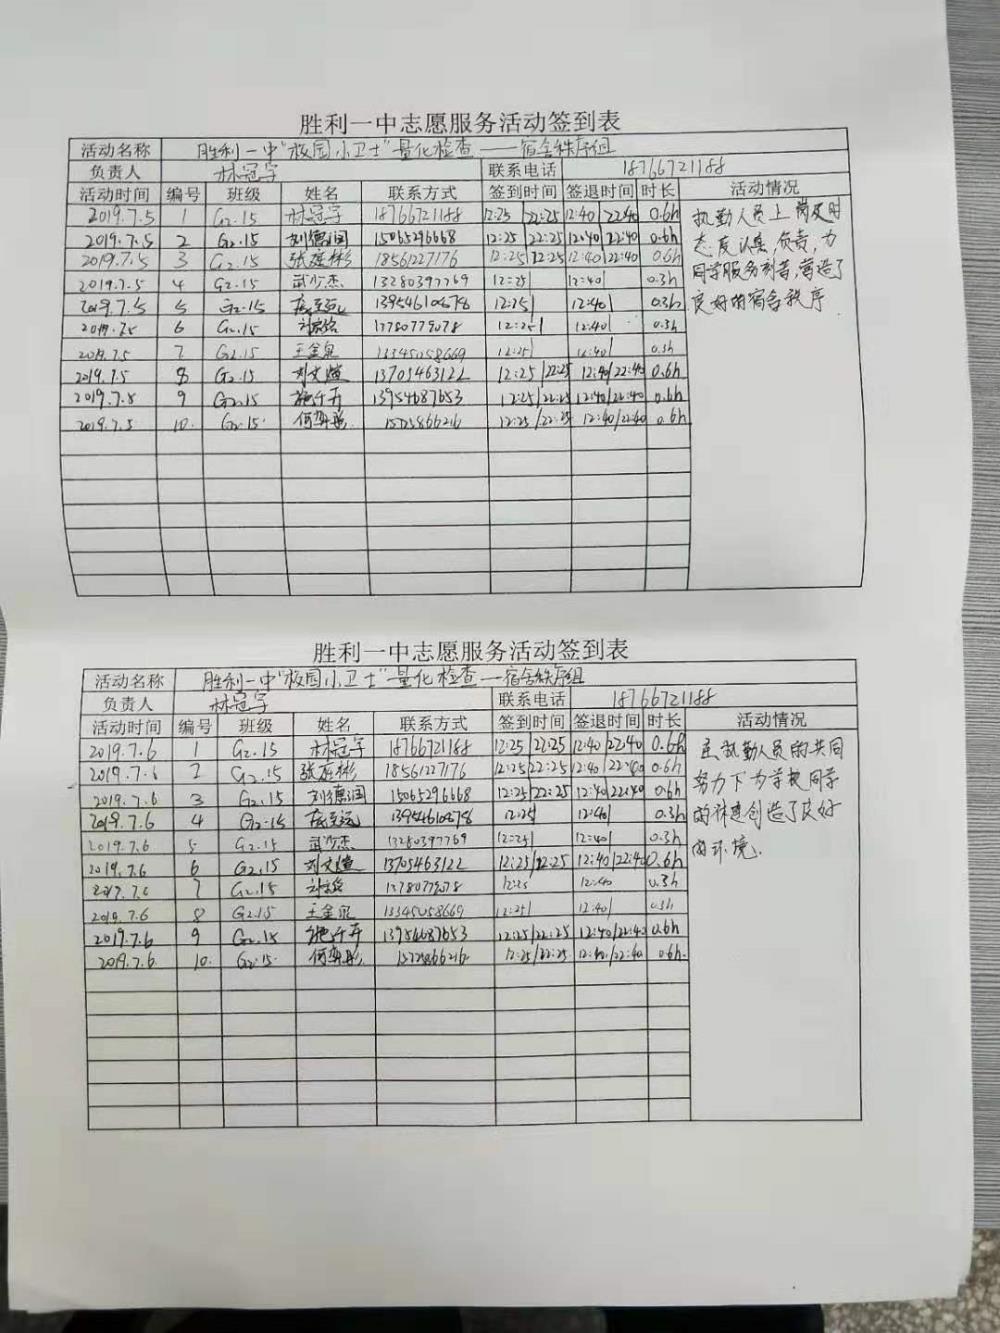 胜利一中志愿服务活动签到表
活动名称 胜利一中"校园小卫士"量化检查——宿舍秩序组
负责人 林冠宇 联系电话 18766721188
活动时间 编号 班级 姓名 联系方式 签到时间 签退时间 时长 活动情况
2019.7.5 1 G2.15 林冠宇 18766721188 12:25/22:25 12:40/22:40 0.6h 执勤人员上岗及时
2019.7.5 2 G2.15 刘德润 15065296668 12:25/22:25 12:40/22:40 0.6h 态度认真,负责,为
2019.7.5 3 G2.15 张庭彬 18561227176 12:25/22:25 12:40/22:40 0.6h 同学服务刻苦,营造了
2019.7.5 4 G2.15 武少杰 13280397769 12:25| 12:40| 0.3h 良好的宿舍秩序
2019.7.5 5 G2.15 13954610678 12:25| 12:40| 0.3h
2019.7.5 6 G2.15 13780779078 12:25| 12:40| 0.3h
2019.7.5 7 G2.15 王金泉 13345058669 12:25| 12:40| 0.3h
2019.7.5 8 G2.15 刘文煊 13705463122 12:25/22:25 12:40/22:40 0.6h
2019.7.5 9 G2.15 施千开 13954687653 12:25/22:25 12:40/22:40 0.6h
2019.7.5 10. G2.15. 15725866216 12:25/22:25 12:40/22:40 0.6h
胜利一中志愿服务活动签到表
活动名称 胜利一中"校园小卫士"量化检查—宿舍秩序组
负责人 林冠宇 联系电话 18766721188
活动时间 编号 班级 姓名 联系方式 签到时间 签退时间 时长 活动情况
2019.7.6 1 G2.15 林冠宇 18766721188 12:25/22:25 12:40/22:40 0.6h 在执勤人员的共同
2019.7.6 2 G2.15 张庭彬 18561227176 12:25/22:25 12:40/22:40 0.6h 努力下为学校同学
2019.7.6 3 G2.15 刘德润 15065296668 12:25/22:25 12:40/22:40 0.6h 创造了良好
2019.7.6 4 G2.15 13954610678 12:25| 12:40| 0.3h 的环境.
2019.7.6 5 G2.15 武少杰 13280397769 12:25| 12:40| 0.3h
2019.7.6 6 G2.15 刘文煊 13705463122 12:25/22:25 12:40/22:40 0.6h
2019.7.6 7 G2.15 13780779078 12:25 12:40 0.3h
2019.7.6 8 G2.15 王金泉 13345058669 12:25| 12:40| 0.3h
2019.7.6 9 G2.15 施千开 13954687653 12:25/22:25 12:40/22:40 0.6h
2019.7.6 10. G2.15. 15725866216 12:25/22:25 12:40/22:40 0.6h.